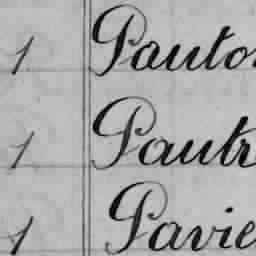 1 Pauto
1 Pautr
1 Pavie